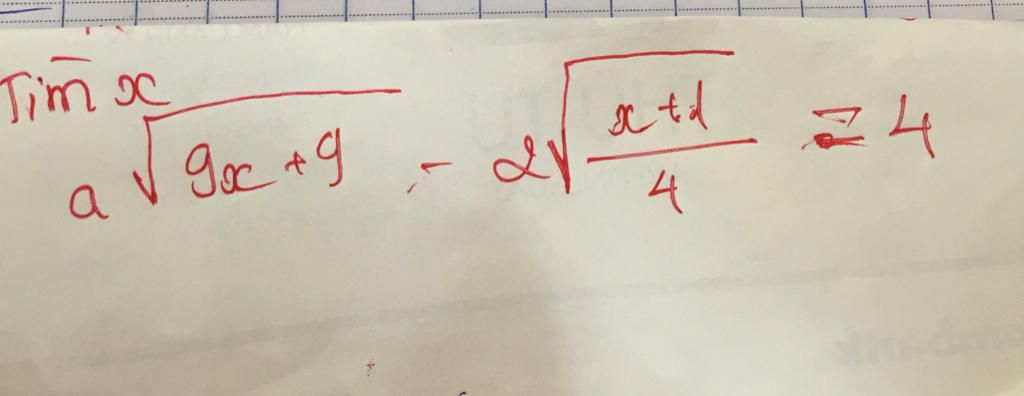 Tìm x
a √(9x + 9) - 2√((x + 1)/4) = 4